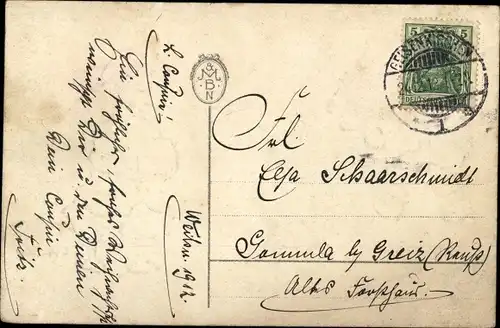 L. Cousine!
Ein fröhliches, frohes Weihnachtsfest
wünscht Dir u. den Deinen
Dein Cousin
Fritz.
Weihn. 1912.
AMBN
5 5
GELSENKIRCHEN
1
Frl.
Elsa Schaarschmidt
Gommla b/ Greiz (Reuß)
Altes Forsthaus.